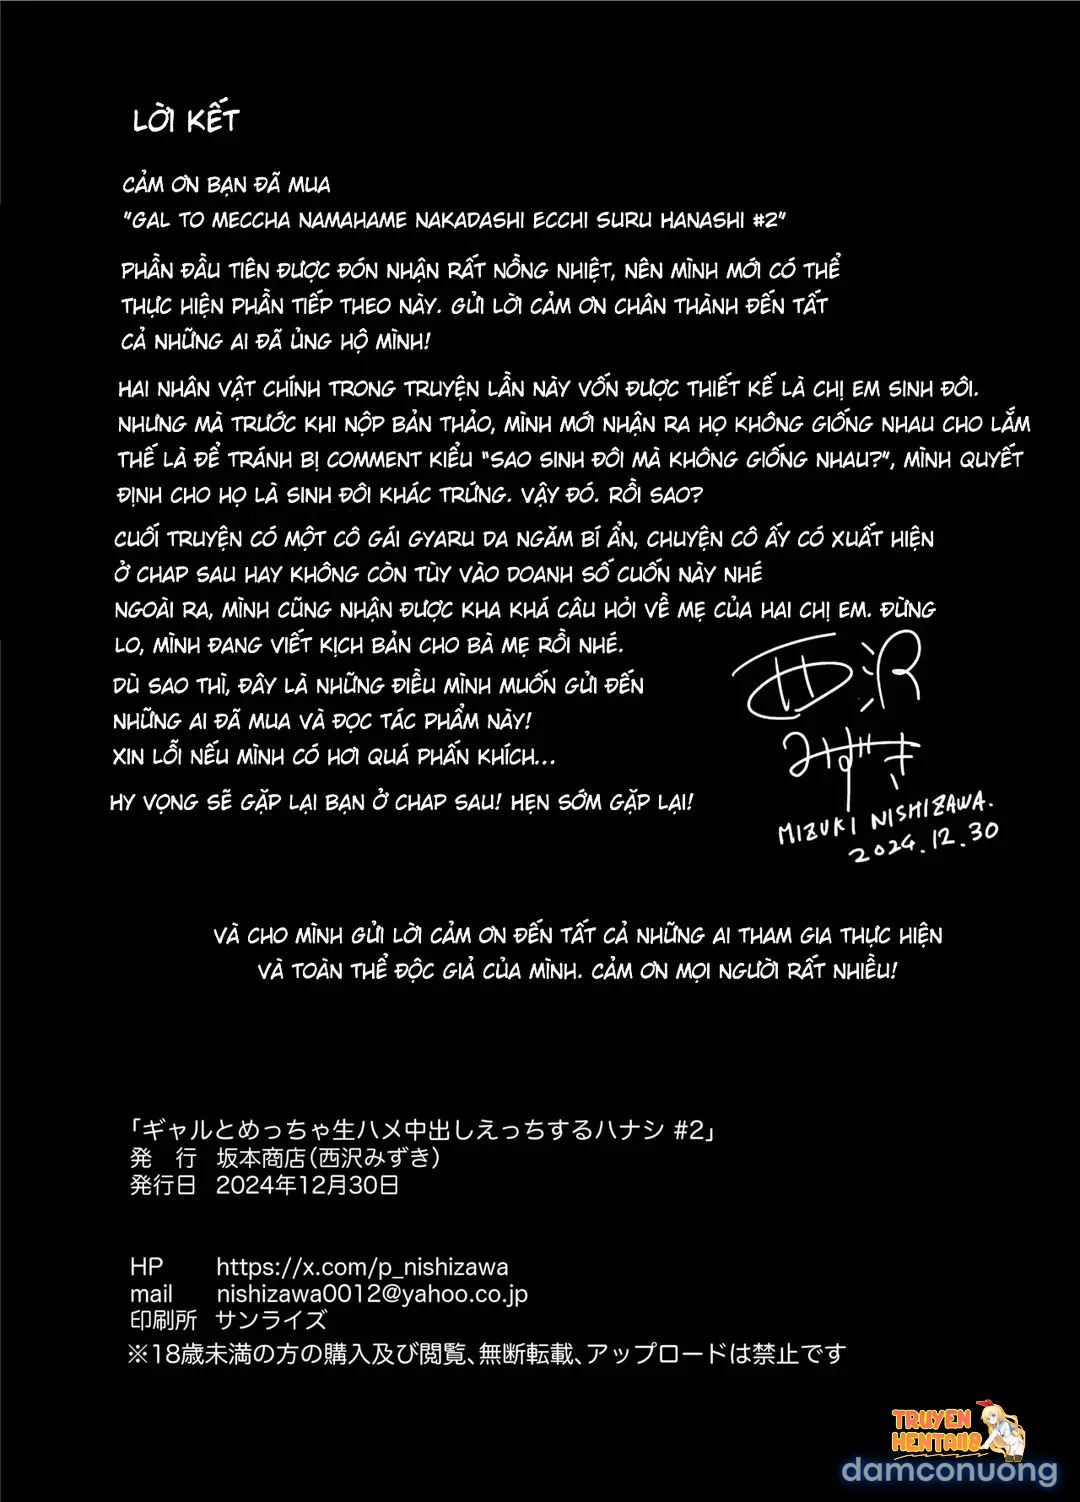 LỜI KẾT
CẢM ƠN BẠN ĐÃ MUA
"GAL TO MECCHA NAMAHAME NAKADASHI ECCHI SURU HANASHI #2"
PHẦN ĐẦU TIÊN ĐƯỢC ĐÓN NHẬN RẤT NỒNG NHIỆT, NÊN MÌNH MỚI CÓ THỂ
THỰC HIỆN PHẦN TIẾP THEO NÀY. GỬI LỜI CẢM ƠN CHÂN THÀNH ĐẾN TẤT
CẢ NHỮNG AI ĐÃ ỦNG HỘ MÌNH!
HAI NHÂN VẬT CHÍNH TRONG TRUYỆN LẦN NÀY VỐN ĐƯỢC THIẾT KẾ LÀ CHỊ EM SINH ĐÔI.
NHƯNG MÀ TRƯỚC KHI NỘP BẢN THẢO, MÌNH MỚI NHẬN RA HỌ KHÔNG GIỐNG NHAU CHO LẮM
THẾ LÀ ĐỂ TRÁNH BỊ COMMENT KIỂU "SAO SINH ĐÔI MÀ KHÔNG GIỐNG NHAU?", MÌNH QUYẾT
ĐỊNH CHO HỌ LÀ SINH ĐÔI KHÁC TRỨNG. VẬY ĐÓ. RỒI SAO?
CUỐI TRUYỆN CÓ MỘT CÔ GÁI GYARU DA NGĂM BÍ ẨN, CHUYỆN CÔ ẤY CÓ XUẤT HIỆN
Ở CHAP SAU HAY KHÔNG CÒN TÙY VÀO DOANH SỐ CUỐN NÀY NHÉ
NGOÀI RA, MÌNH CŨNG NHẬN ĐƯỢC KHA KHÁ CÂU HỎI VỀ MẸ CỦA HAI CHỊ EM. ĐỪNG
LO, MÌNH ĐANG VIẾT KỊCH BẢN CHO BÀ MẸ RỒI NHÉ.
DÙ SAO THÌ, ĐÂY LÀ NHỮNG ĐIỀU MÌNH MUỐN GỬI ĐẾN
NHỮNG AI ĐÃ MUA VÀ ĐỌC TÁC PHẨM NÀY!
XIN LỖI NẾU MÌNH CÓ HƠI QUÁ PHẤN KHÍCH...
HY VỌNG SẼ GẶP LẠI BẠN Ở CHAP SAU! HẸN SỚM GẶP LẠI!
西沢
みずき
MIZUKI NISHIZAWA.
2024.12.30
VÀ CHO MÌNH GỬI LỜI CẢM ƠN ĐẾN TẤT CẢ NHỮNG AI THAM GIA THỰC HIỆN
VÀ TOÀN THỂ ĐỘC GIẢ CỦA MÌNH. CẢM ƠN MỌI NGƯỜI RẤT NHIỀU!
「ギャルとめっちゃ生ハメ中出しえっちするハナシ #2」
発 行 坂本商店(西沢みずき)
発行日 2024年12月30日
HP https://x.com/p_nishizawa
mail nishizawa0012@yahoo.co.jp
印刷所 サンライズ
※18歳未満の方の購入及び閲覧、無断転載、アップロードは禁止です
TRUYEN
HENTAI18
damconuong